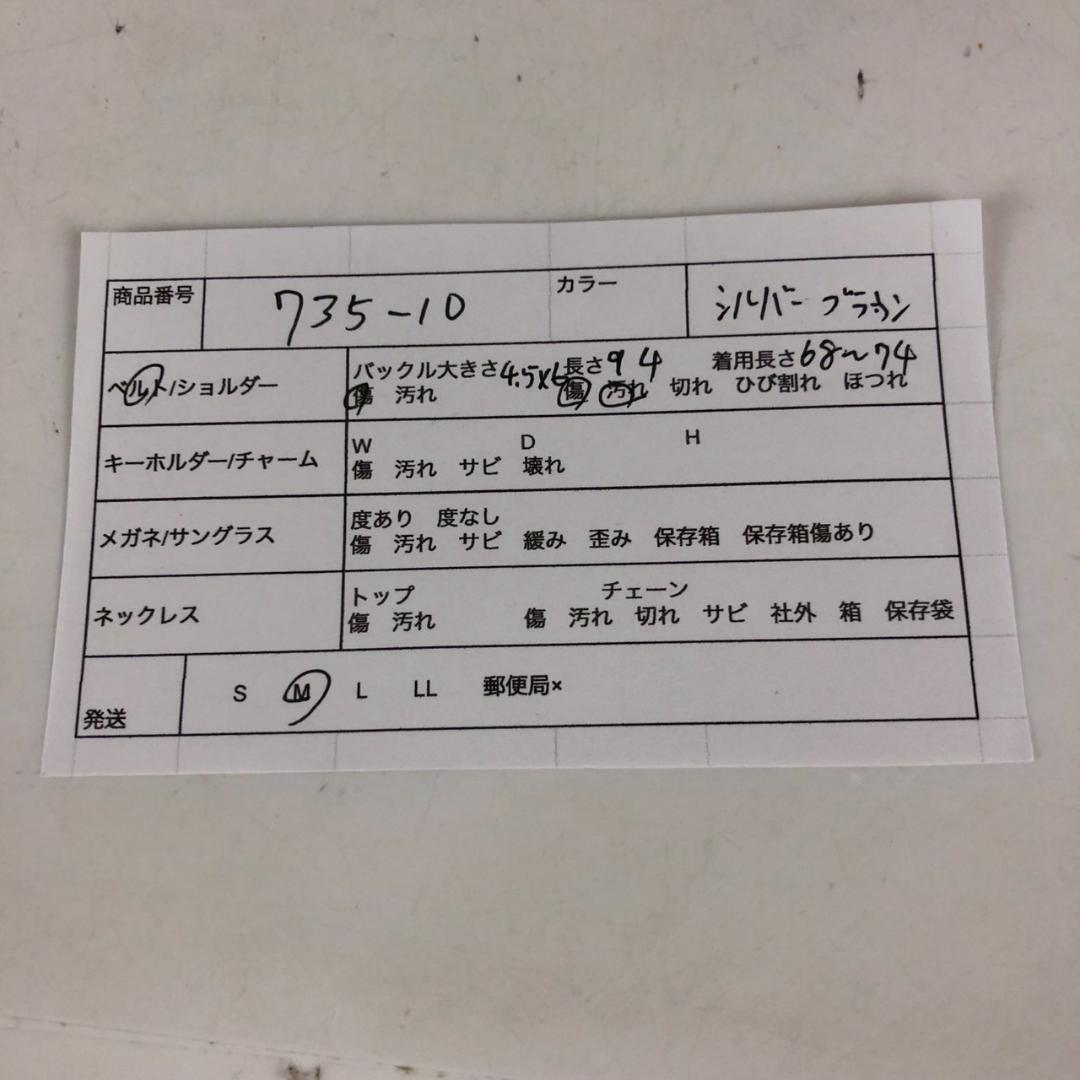 商品番号 735-10 カラー シルバー ブラウン
ベルト/ショルダー バックル大きさ 4.5×6 長さ 94 着用長さ 68~74
傷 汚れ 傷 汚れ 切れ ひび割れ ほつれ
キーホルダー/チャーム W D H
傷 汚れ サビ 壊れ
メガネ/サングラス 度あり 度なし
傷 汚れ サビ 緩み 歪み 保存箱 保存箱傷あり
ネックレス トップ チェーン
傷 汚れ 傷 汚れ 切れ サビ 社外 箱 保存袋
発送 S M L LL 郵便局×